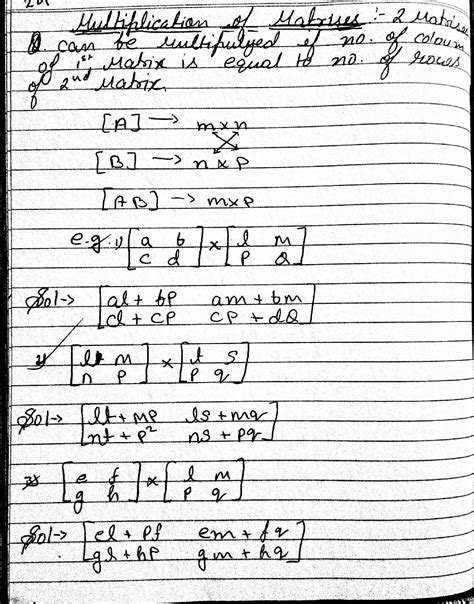 Multiplication of Matrises :- 2 Matrises
can be multipulyed if no. of coloum
of 1st Matrix is equal to no. of rows
of 2nd Matrix.
[A] → m×n
[B] → n×p
[AB] → m×p
e.g. 1) [a b] × [l m]
[c d] [p Q]
Sol→ [al + bp am + bm]
[cl + cp cp + dQ]
2) [l m] × [t s]
[n p] [p q]
Sol→ [lt + mp ls + mq]
[nt + p² ns + pq]
3) [e f] × [l m]
[g h] [p q]
Sol→ [el + pf em + fq]
[gl + hp gm + hq]